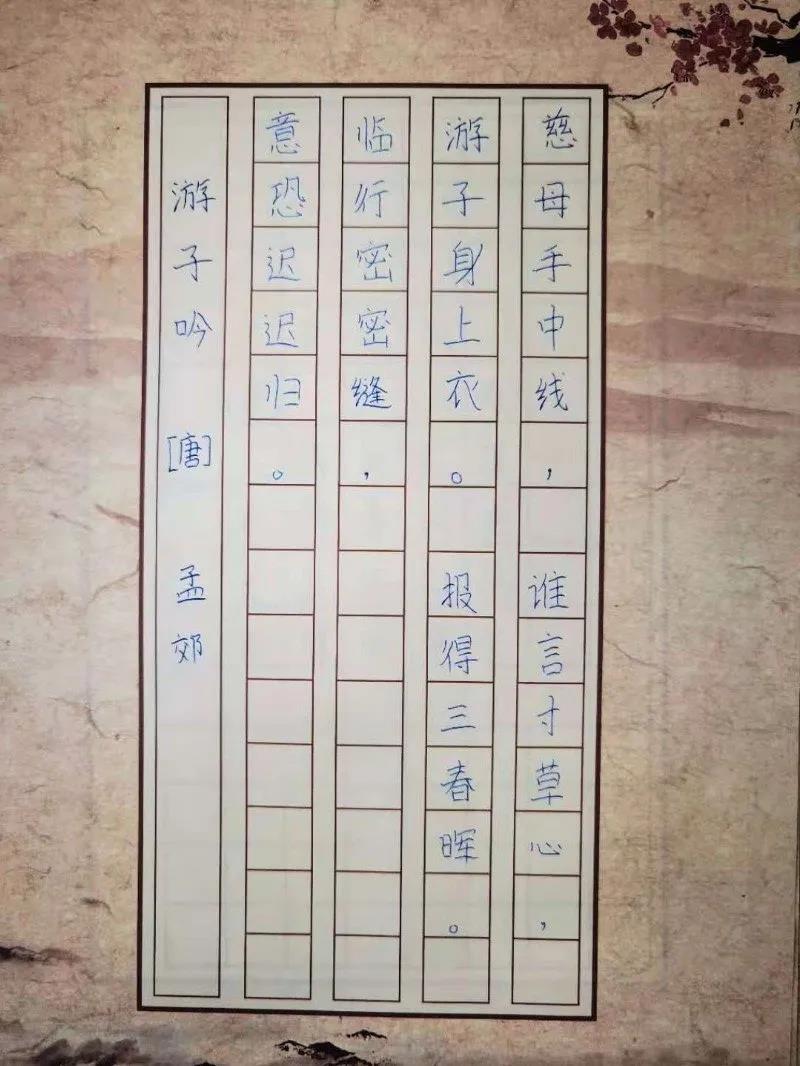 慈母手中线， 谁言寸草心，
游子身上衣。 报得三春晖。
临行密密缝，
意恐迟迟归。
游子吟 [唐] 孟郊